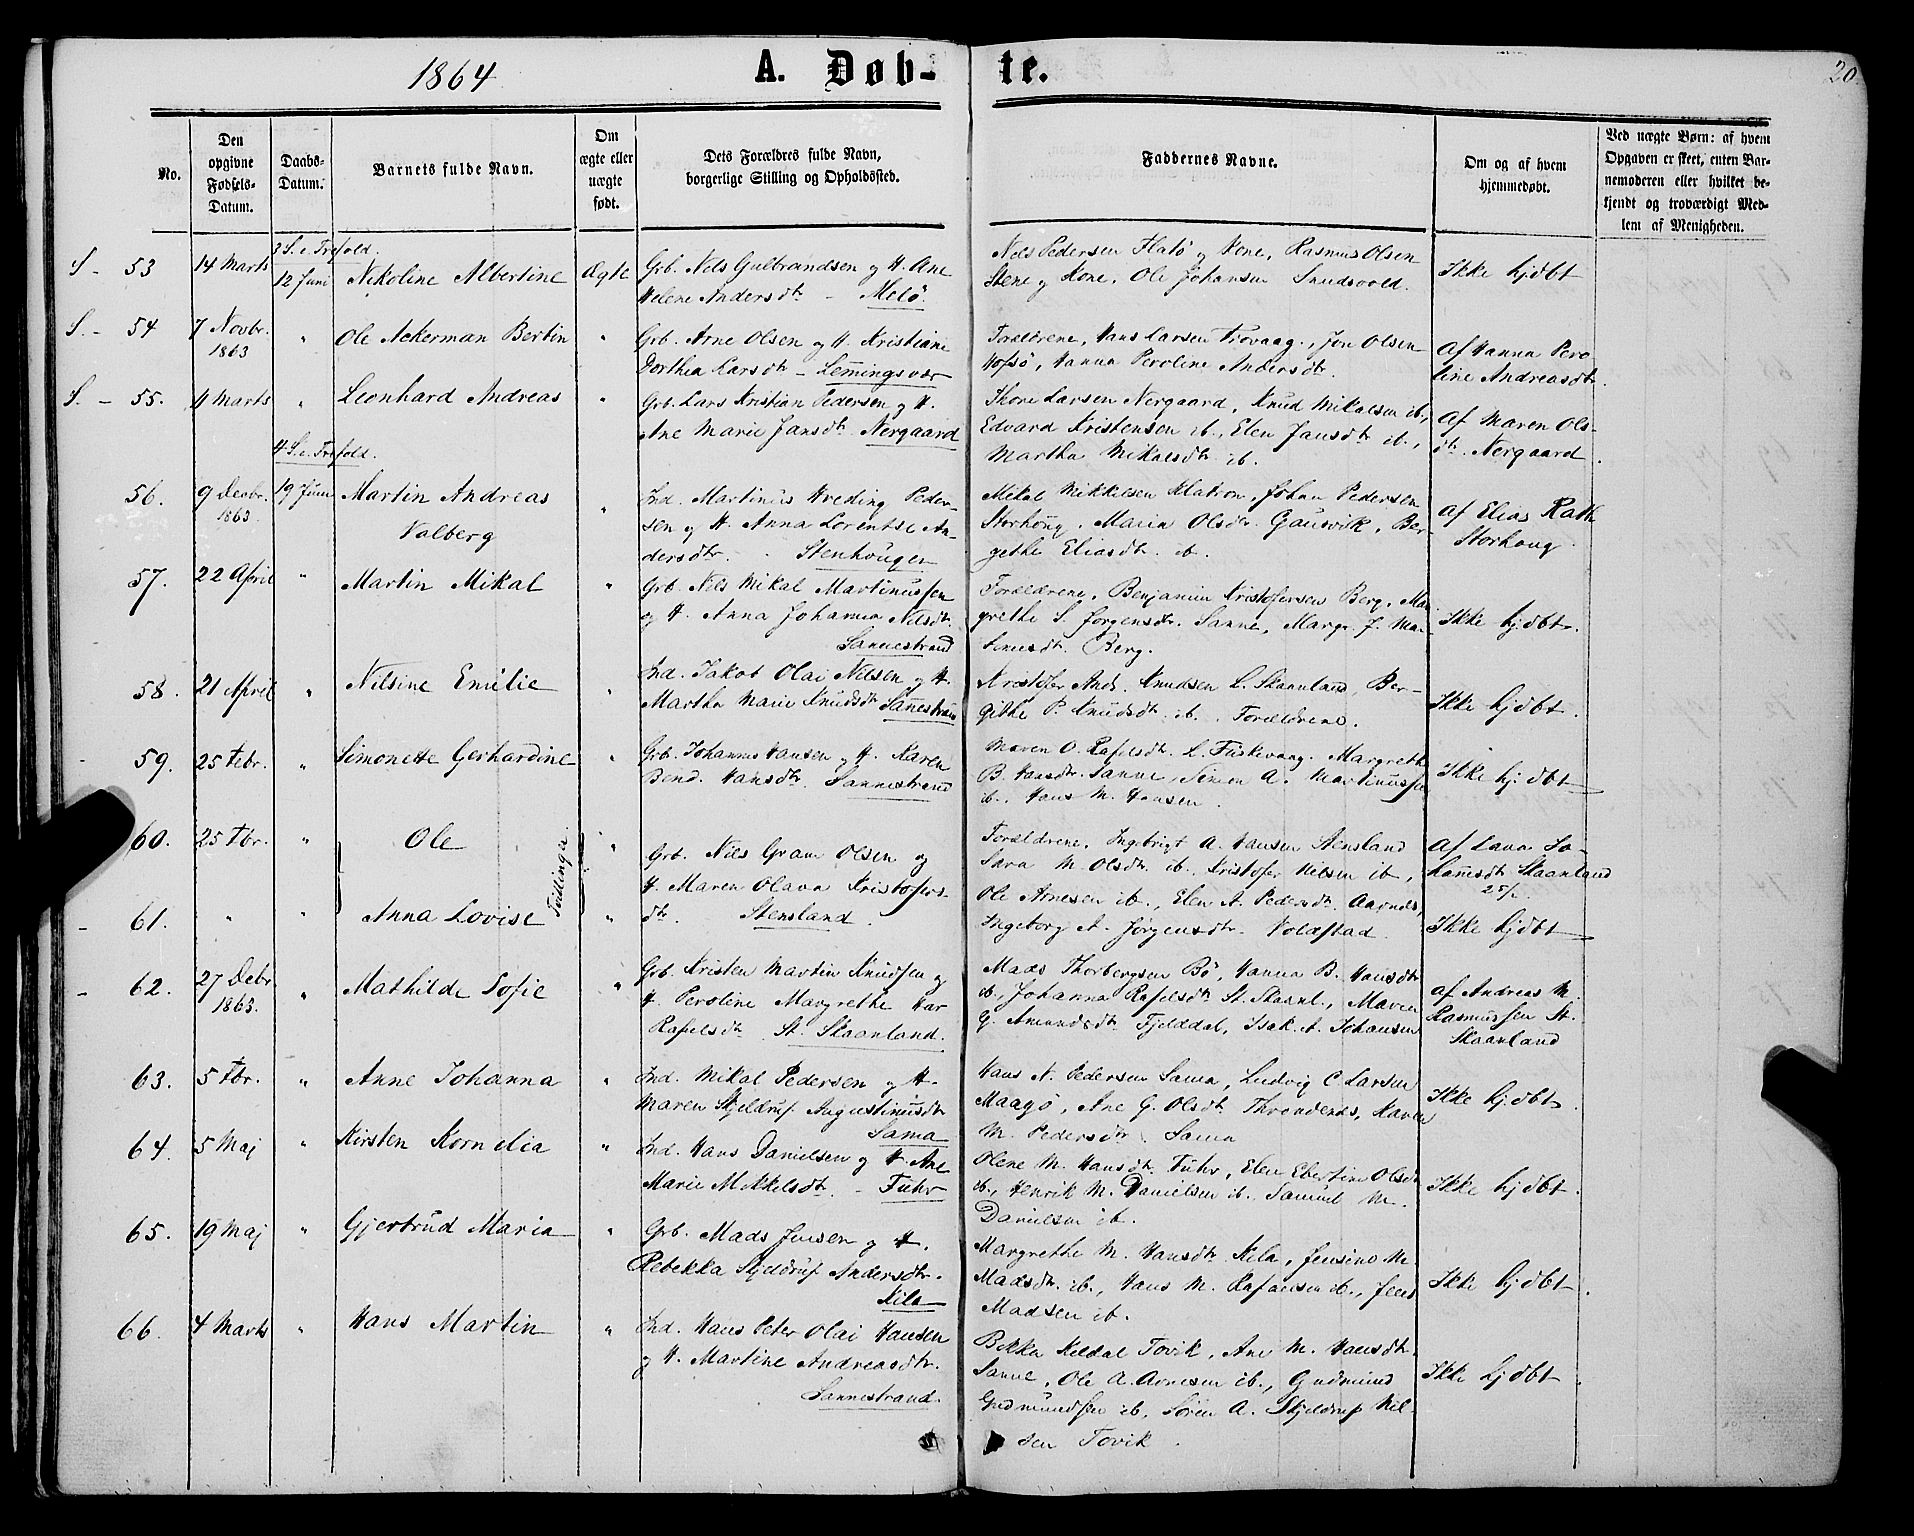 1864
A. Døb-te.
20
No.
Den opgivne Fødsels-Datum.
Daabs-Datum.
Barnets fulde Navn.
Om ægte eller uægte født.
Dets Forældres fulde Navn, borgerlige Stilling og Opholdssted.
Faddernes Navne.
Om og af hvem hjemmedøbt.
Ved uægte Børn: af hvem Opgaven er skeet, enten Barnemoderen eller hvilket bekjendt og troværdigt Medlem af Menigheden.
3 S. e. Trefold.
S - 53 14 Marts 12 Juni Nikoline Albertine Ægte
Grb. Nils Gulbrandsen og H. Ane
Helene Andersdtr - Melö.
Nels Pedersen Flatö og Kone, Rasmus Olsen
Stene og Kone, Ole Johansen Sundsvold.
Ikke hjdbt
S. - 54 7 Novbr. 1863 " Ole Ackerman Bertin "
Grb. Arne Olsen og H. Kristiane
Dorthea Larsdtr - Lemmingsvær
Forældrene, Hans Larsen Trovaag, Jon Olsen
Hofsö, Hanna Peroline Andersdtr.
Af Hanna Pero
line Andreasdtr.
S. - 55. 4 Marts " Leonhard Andreas "
Grb. Lars Kristian Pedersen og H.
Ane Marie Jansdtr. Nergaard
Thore Larsen Nergaard, Knud Mikalsen ib.,
Edvard Kristensen ib., Elen Jansdtr ib.,
Martha Mikalsdtr ib.
Af Maren Ols-
dtr. Nergaard.
4 S. e. Trefold.
56. 9 Decbr. 1863. 19 Juni Martin Andreas
Valberg "
Ind. Martinus Hveding Peder-
sen og H. Anna Lorentse An-
dersdtr. Stenhougen
Mikal Mikkelsen Klatron, Johan Pedersen
Storhoug, Maria Olsdtr. Gausvik, Ber-
gethe Eliasdtr. ib.
af Elias Rath
Storhoug.
57. 22 April " Martin Mikal "
Grb. Nels Mikal Martinussen
og H. Anna Johanna Nilsdtr.
Sannestrand
Forældrene, Benjamin Kristofersen Berg, Mar
grethe S. Jørgensdtr. Sanne, Margr. J. Mar-
tinusdtr. Berg.
Ikke hjdbt.
58. 21 April " Nilsine Emilie "
Ind. Jakob Olai Nilsen og H.
Martha Marie Knudsdtr Sannestrand
Kristofer Andr. Knudsen L. Skaanland, Ber-
githe P. Knudsdtr. ib. Forældrene.
Ikke hjdbt.
59. 25 Febr. " Simonette Gerhardine "
Grb. Johannes Hansen og H. Karen
Bend. Hansdtr. Sannestrand
Maren O. Rafelsdtr. L. Fiskevaag, Margrethe
B. Hansdtr. Sanne, Simon A. Martinussen
ib., Hans M. Hansen.
Ikke hjdbt
60. 25 Fbr. " Ole "
Tvillinger.
Grb. Nils Gram Olsen og
H. Maren Olava Kristofers-
dtr. Stensland.
Forældrene, Ingebrigt A. Hansen Stensland
Sara M. Olsdtr ib., Kristofer Nilsen ib.,
Ole Arnesen ib., Elen A. Pedersdtr. Aarnes,
Ingeborg A. Jørgensdtr. Voldstad.
Af Lava Jo-
hannesdtr Skaanland
25/2.
61. " " Anna Lovise "
Ikke hjdbt
62. 27 Debr 1863. " Mathilde Sofie "
Grb. Kristen Martin Knudsen og
H. Peroline Margrethe Mar
Rafelsdtr St. Skaanland.
Mads Thorbergsen Bö, Hanna B. Hansdtr
ib., Johanna Rafelsdtr St. Skaanl., Maren
G. Amundsdtr Fjelddal, Isak A. Johansen
af Andreas M.
Rasmussen St.
Skaanland
63. 5 Fbr. " Anne Johanna "
Ind. Mikal Pedersen og H.
Maren Skjeldrup Augustinusdtr
Sama
Hans N. Pedersen Sama, Ludvig C. Larsen
Maagö, Ane G. Olsdtr Throndenes, Karen
M. Pedersdtr. Sama
Ikke hjdbt.
64. 5 Maj " Kirsten Kornelia "
Ind. Hans Danielsen og H. Ane
Marie Mikkelsdtr. - Fuhr
Olene M. Hansdtr. Fuhr, Elen Ebertine Olsdtr
ib., Henrik M. Danielsen ib. Samuel M.
Danielsen ib.
Ikke hjdbt.
65. 19 Maj " Gjertrud Maria "
Grb. Mads Jensen og H.
Rebekka Skjeldrup Andersdtr.
Kila
Margrethe M. Hansdtr. Kila, Jensine M.
Madsdtr. ib., Hans M. Rafaelsen ib., Jens
Madsen ib.
Ikke hjdbt.
66. 4 Marts " Hans Martin "
Ind. Hans Peter Olai Hansen
og H. Martine Andreasdtr.
Sannestrand.
Bekka Keldal Tovik, Ane M. Hansdtr.
Sanne, Ole A. Arnesen ib., Gudmund
Gudmundsen ib., Sören A. Skjeldrup Nil-
sen Tovik.
Ikke hjdbt.